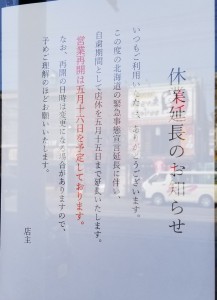 休業延長のお知らせ
いつもご利用いただきありがとうございます。
この度の北海道の緊急事態宣言延長に伴い、
自粛期間として店休を五月十五日まで延長いたします。
営業再開は五月十六日を予定しております。
なお、再開の日時は変更になる場合がありますので、
予めご理解のほどお願いいたします。
店主